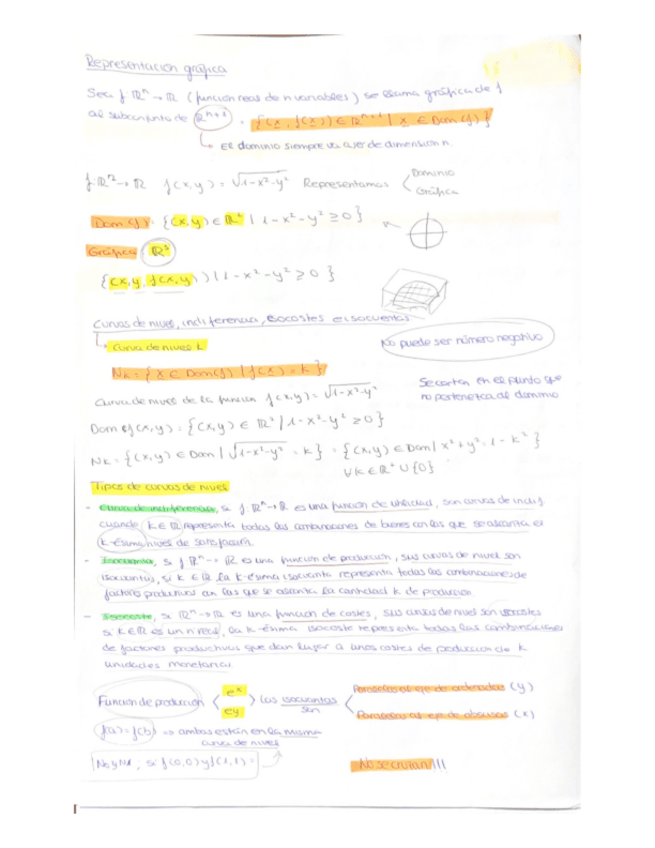 Representación gráfica
Sea f: ℝⁿ → ℝ (función real de n variables) se llama gráfica de f
al subconjunto de ℝⁿ⁺¹ = {(x, f(x)) ∈ ℝⁿ⁺¹ | x ∈ Dom(f)}
El dominio siempre va a ser de dimensión n.
f: ℝ² → ℝ f(x,y) = √1-x²-y² Representamos Dominio
Gráfica
Dom(f): {(x,y) ∈ ℝ² | 1-x²-y² ≥ 0}
Gráfica: ℝ³
{(x,y, f(x,y)) | 1-x²-y² ≥ 0}
Curvas de nivel, indiferencia, isocostes e isocuantas
Curva de nivel k
No puede ser número negativo
Nk = {x ∈ Dom(f) | f(x) = k}
Curva de nivel de la función f(x,y) = √1-x²-y²
Se cortan en el punto que
no pertenezca al dominio
Dom f(x,y) = {(x,y) ∈ ℝ² | 1-x²-y² ≥ 0}
Nk = {(x,y) ∈ Dom | √1-x²-y² = k} = {(x,y) ∈ Dom | x²+y² = 1-k²}
∀k ∈ ℝ⁺ ∪ {0}
Tipos de curvas de nivel
- Curva de indiferencia, si f: ℝⁿ → ℝ es una función de utilidad, son curvas de indif
cuando k ∈ ℝ representa todas las combinaciones de bienes con las que se alcanza el
k-ésimo nivel de satisfacción.
- Isocuanta, si f ℝⁿ → ℝ es una función de producción, sus curvas de nivel son
isocuantas, si k ∈ ℝ la k-ésima isocuanta representa todas las combinaciones de
factores productivos con las que se alcanza la cantidad k de producción.
- Isocoste, si ℝⁿ → ℝ es una función de costes, sus curvas de nivel son isocostes
si k ∈ ℝ es un nº real, la k-ésima isocoste representa todas las combinaciones
de factores productivos que dan lugar a unos costes de producción de k
unidades monetarias.
Función de producción eˣ las isocuantas Paralelas al eje de ordenadas (y)
eʸ son Paralelas al eje de abscisas (x)
f(a) = f(b) ⇒ ambas están en la misma
curva de nivel
si f(0,0) y f(1,1) =
No se cruzan!!!